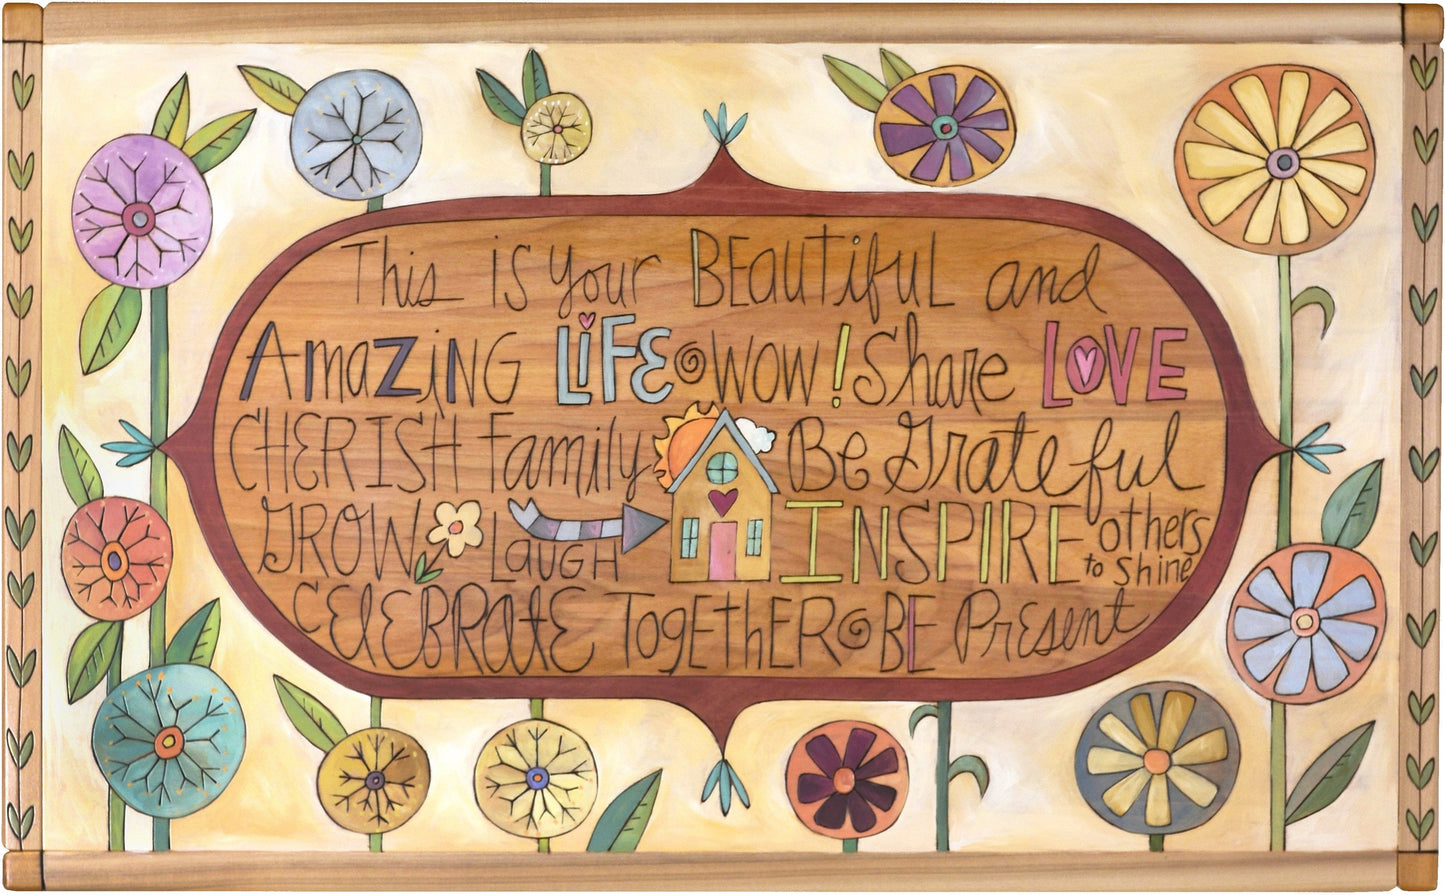 This is your BEAUTiful and
AmaZiNG LiFE WOW! Share LOVE
CHERISH Family Be Grateful
GROW LAUGH INSPIRE others to shine
CElEBRatE TogEthER BE PrEsent